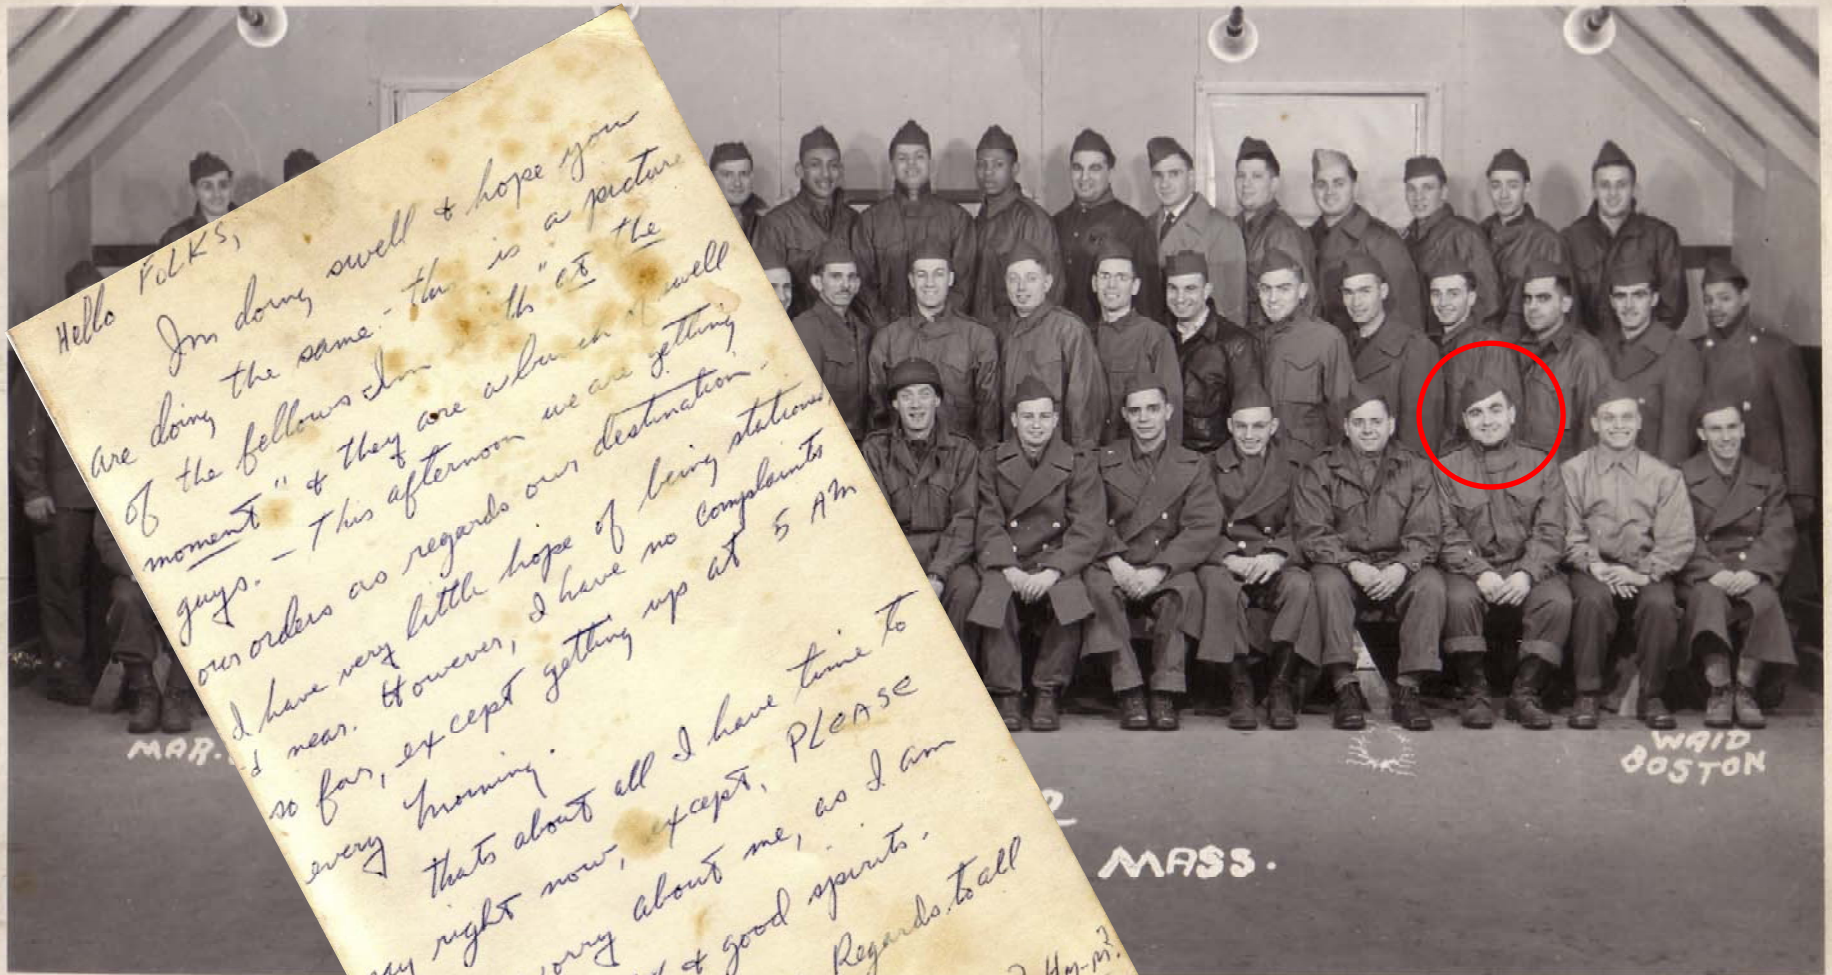 Hello FOLKS,
Im doing swell & hope you
are doing the same. - this is a picture
of the fellows Im with "at the
moment" & they are a bunch of swell
guys. - This afternoon we are getting
our orders as regards our destination.
I have very little hope of being stationed
near. However, I have no complaints
so far, except getting up at 5 AM
every morning.
thats about all I have time to
right now, except, PLEASE
worry about me, as I am
& good spirits.
Regards to all
MAR.
WAID
BOSTON
MASS.